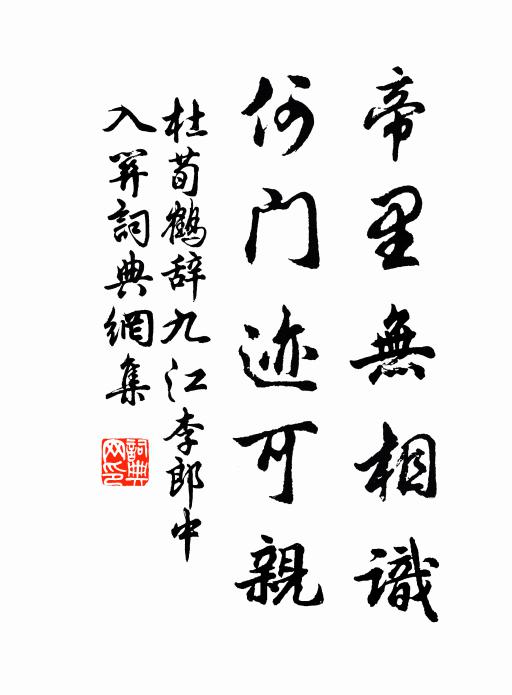 帝里無相識
何門迹可親
杜荀鶴辞九江李郎中
入關詞典網集
詞典網印